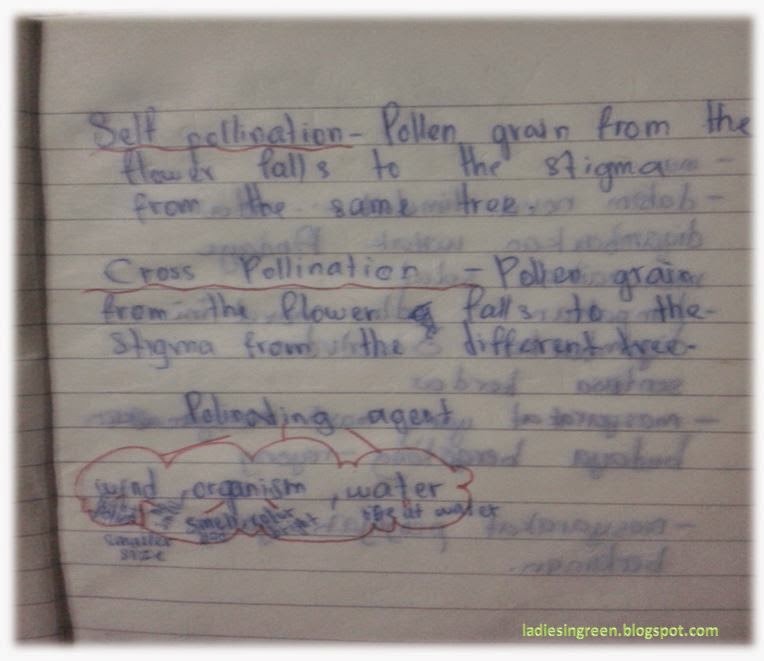 Self pollination - Pollen grain from the
flower falls to the stigma
from the same tree.
Cross Pollination - Pollen grain
from the flower falls to the
stigma from the different tree.
Polinating agent
wind, organism, water
smell color
smaller
size
ladiesingreen.blogspot.com